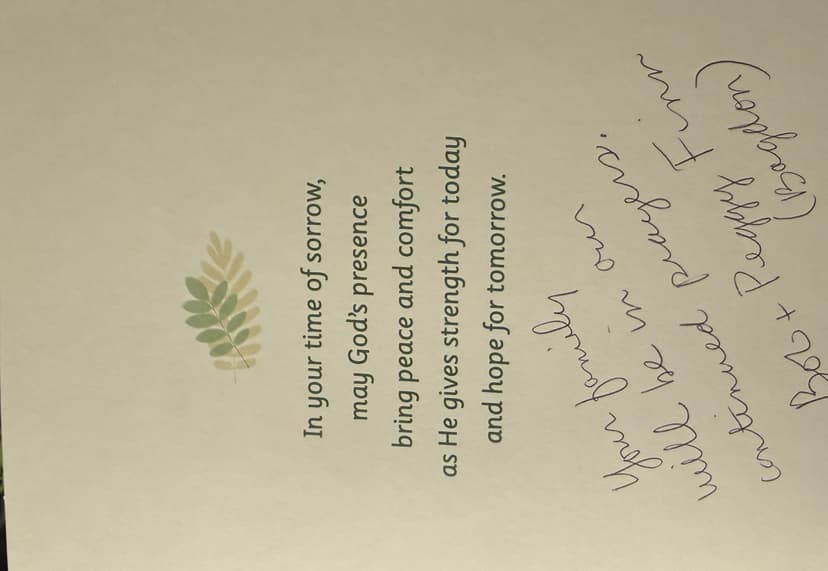 In your time of sorrow,
may God's presence
bring peace and comfort
as He gives strength for today
and hope for tomorrow.
Your family
will be in our
continued prayers.
Bob + Peggy Finn
(Bagdon)